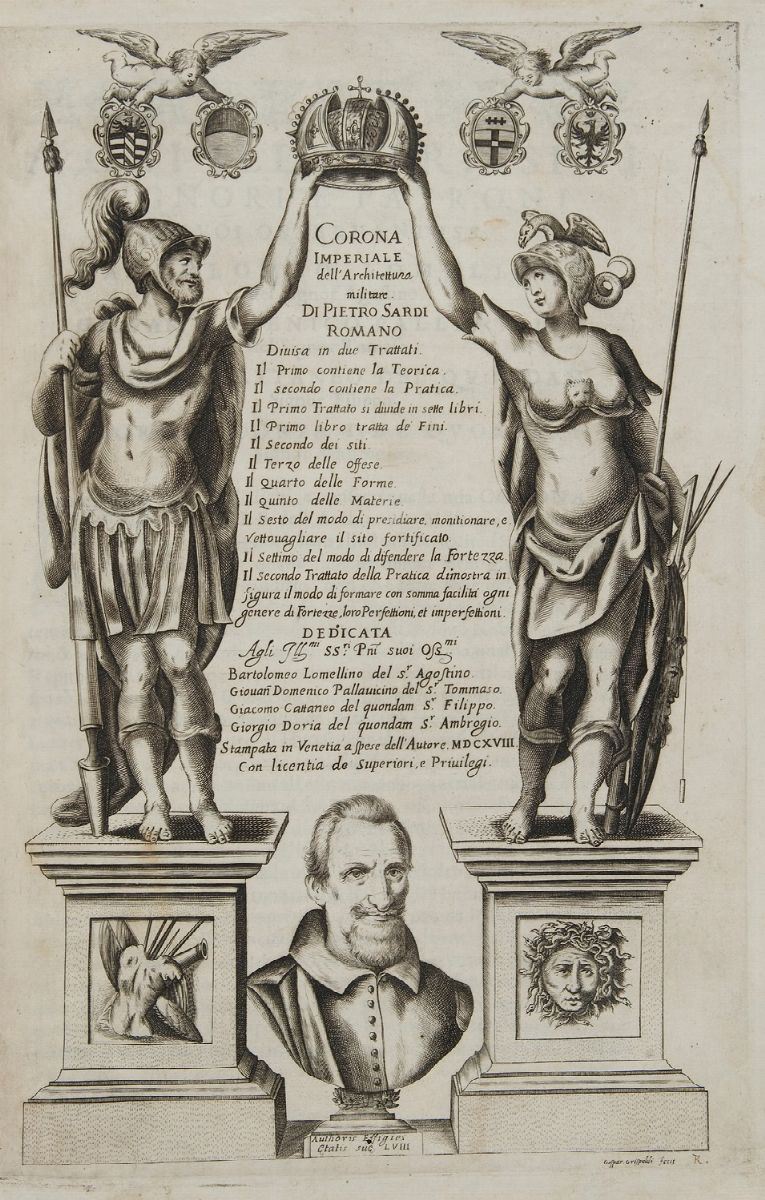 CORONA
IMPERIALE
dell'Architettura
militare.
DI PIETRO SARDI
ROMANO
Diuisa in due Trattati.
Il Primo contiene la Teorica.
Il secondo contiene la Pratica.
Il Primo Trattato si diuide in sette libri.
Il Primo libro tratta de' Fini.
Il Secondo dei siti.
Il Terzo delle offese.
Il Quarto delle Forme.
Il Quinto delle Materie.
Il Sesto del modo di presidiare, monitionare, e
Vettouagliare il sito fortificato.
Il Settimo del modo di difendere la Fortezza.
Il Secondo Trattato della Pratica dimostra in
figura il modo di formare con somma facilità ogni
genere di Fortezze, loro Perfettioni, et imperfettioni.
DEDICATA
Agli Ill.mi SS.ri Pni suoi Oss.mi
Bartolomeo Lomellino del s.r Agostino.
Giouan Domenico Pallauicino del s.r Tommaso.
Giacomo Cattaneo del quondam S.r Filippo.
Giorgio Doria del quondam S.r Ambrogio.
Stampata in Venetia a spese dell'Autore. MDCXVIII.
Con licentia de Superiori, e Priuilegi.
Authoris Effigies
Ętatis suę LVIII
fecit R.